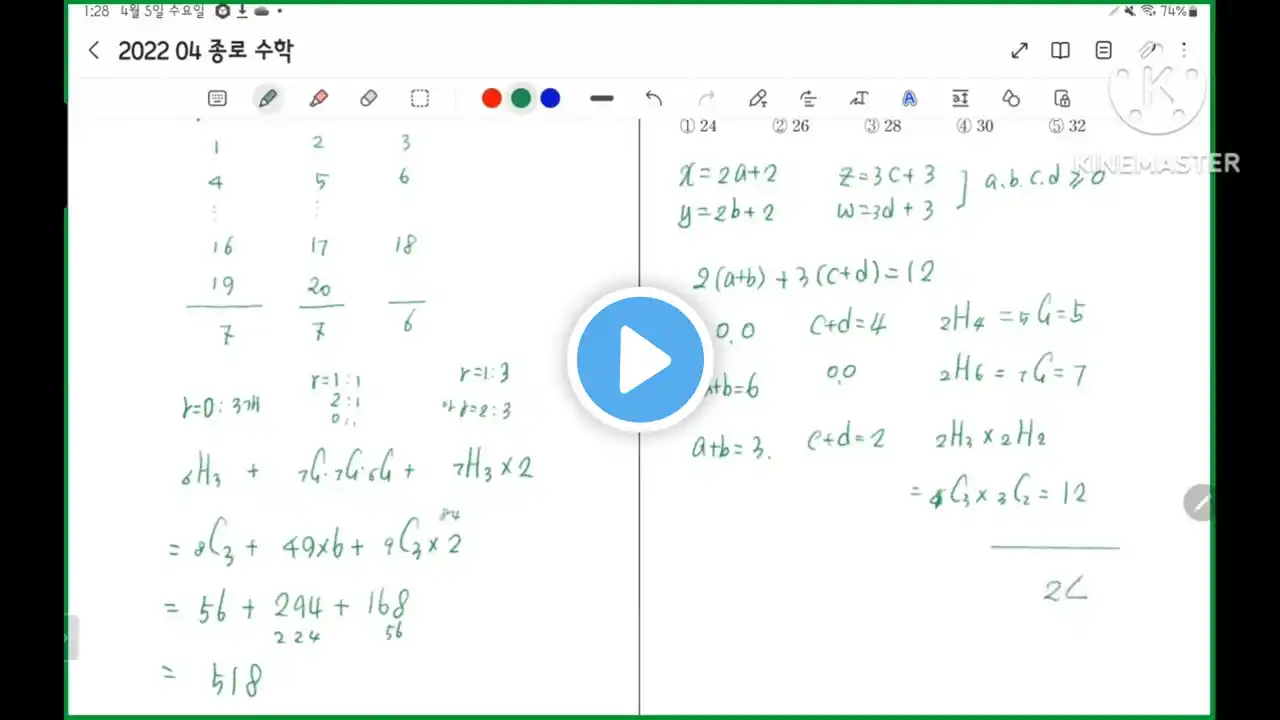 1:28 4월 5일 수요일
74%
2022 04 종로 수학
KINEMASTER
1 2 3
4 5 6
⋮ ⋮
16 17 18
19 20
7 7 6
r=0 : 3개
r=1 : 1
2 : 1
0 : 1
r=1 : 3
r=2 : 3
₆H₃ + ₇C₁·₇C₁·₆C₁ + ₇H₃ × 2
= ₈C₃ + 49×6 + ₉C₃ × 2
84
= 56 + 294 + 168
224 56
= 518
① 24 ② 26 ③ 28 ④ 30 ⑤ 32
x=2a+2 z=3c+3
y=2b+2 w=3d+3
a.b.c.d ≥ 0
2(a+b) + 3(c+d) = 12
0,0 c+d=4 ₂H₄ = ₅C₁ = 5
+b=6 0,0 ₂H₆ = ₇C₁ = 7
a+b=3. c+d=2 ₂H₃ × ₂H₂
= ₄C₃ × ₃C₂ = 12